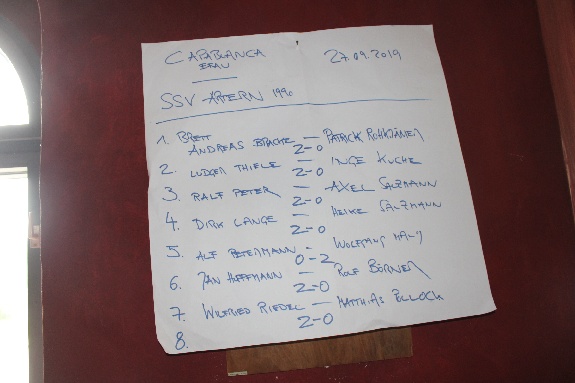 CAPABLANCA 27.09.2019
SSV ARTERN 1990
1. BRETT
ANDREAS — PATRICK
2-0
2. LUDGER THIELE — INGE KUCHE
2-0
3. RALF PETER — AXEL SALZMANN
2-0
4. DIRK LANGE — HEIKE SALZMANN
2-0
5. ALF PETERMANN - WOLFGANG
0-2
6. JAN HOFFMANN — ROLF BÖRNER
2-0
7. WILFRIED RIEDEL — MATTHIAS
2-0
8.